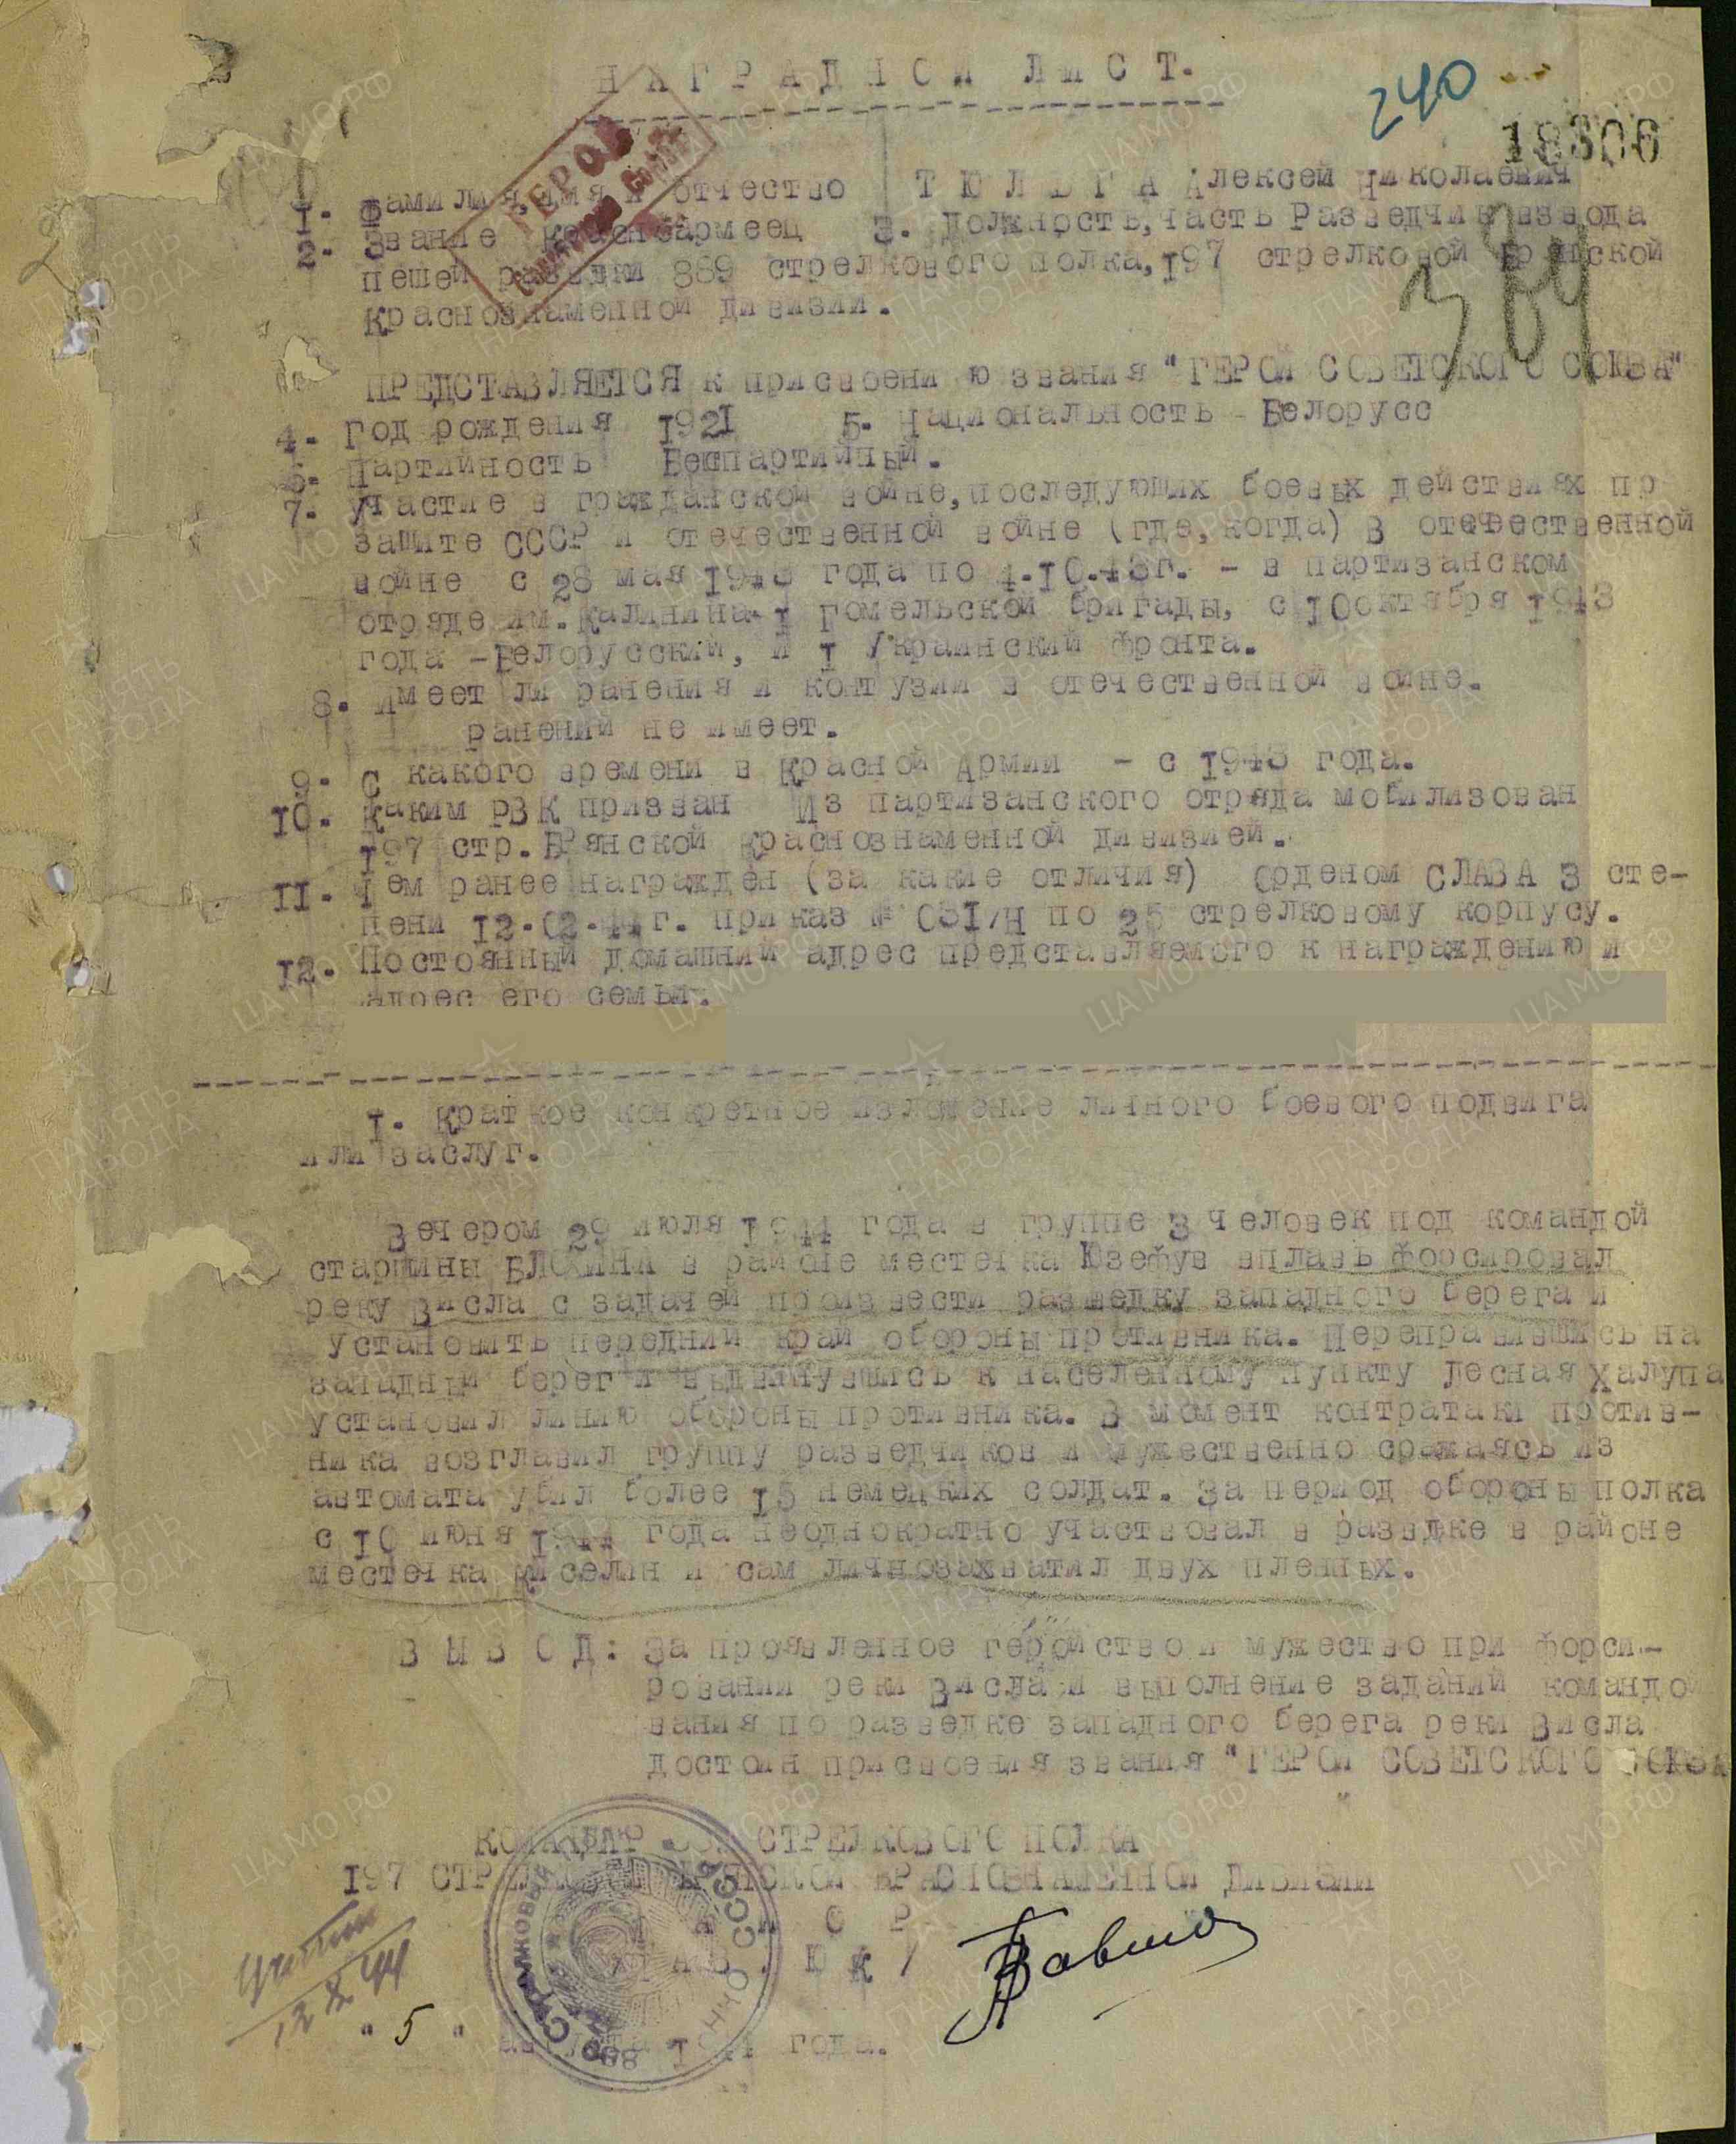 НАГРАДНОЙ ЛИСТ.
240
18306
1. Фамилия, имя и отчество ТЮЛЬГА Алексей Николаевич
2. Звание красноармеец 3. Должность, часть Разведчик взвода
пешей разведки 889 стрелкового полка, 197 стрелковой Брянской
Краснознаменной дивизии.
ПРЕДСТАВЛЯЕТСЯ к присвоени ю звания "ГЕРОЙ СОВЕТСКОГО СОЮЗА"
4. Год рождения 1921 5. Национальность - Белорусс
6. Партийность Беспартийный.
7. Участие в гражданской войне, последующих боевых действиях пр
защите СССР и отечественной войне (где, когда) В отечественной
войне с 28 мая 1943 года по 4.10.43г. - в партизанском
отряде им. Калинина 1 Гомельской бригады, с 10 октября 1943
года - Белорусский, и 1 Украинский фронта.
8. Имеет ли ранения и контузии в отечественной войне.
ранений не имеет.
9. С какого времени в Красной Армии - с 1943 года.
10. Каким РВК призван Из партизанского отряда мобилизован
197 стр. Брянской Краснознаменной дивизией.
11. Чем ранее награжден (за какие отличия) Орденом СЛАВА 3 сте-
пени 12.02.44г. приказ № 031/Н по 25 стрелковому корпусу.
12. Постоянный домашний адрес представляемого к награждению и
адрес его семьи.
1. Краткое конкретное изложение личного боевого подвига
или заслуг.
Вечером 29 июля 1944 года в группе 3 человек под командой
старшины БЛОХИНА в районе местечка Юзефув вплавь форсировал
реку Висла с задачей произвести разведку западного берега и
установить передний край обороны противника. Переправившись на
западный берег и выдвинувшись к населенному пункту Лесная Халупа
установил линию обороны противника. В момент контратаки против-
ника возглавил группу разведчиков и мужественно сражаясь из
автомата убил более 15 немецких солдат. За период обороны полка
с 10 июня 1944 года неоднократно участвовал в разведке в районе
местечка Киселин и сам лично захватил двух пленных.
ВЫВОД: За проявленное геройство и мужество при форси-
ровании реки Висла и выполнение заданий командо
вания по разведке западного берега реки Висла
достоин присвоения звания "ГЕРОЙ СОВЕТСКОГО СОЮЗА
КОМАНДИР 889 СТРЕЛКОВОГО ПОЛКА
197 СТРЕЛКОВОЙ БРЯНСКОЙ КРАСНОЗНАМЕННОЙ ДИВИЗИИ
"5" августа 1944 года.